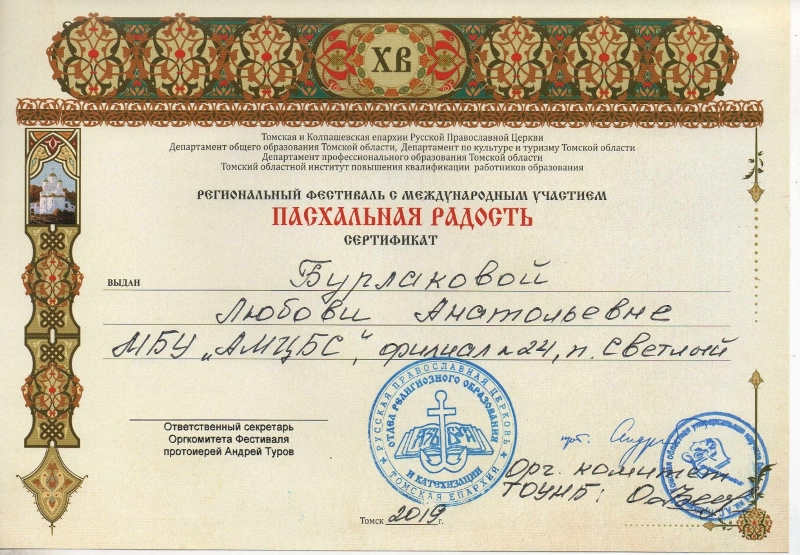 ХВ
Томская и Колпашевская епархии Русской Православной Церкви
Департамент общего образования Томской области, Департамент по культуре и туризму Томской области
Департамент профессионального образования Томской области
Томский областной институт повышения квалификации работников образования
РЕГИОНАЛЬНЫЙ ФЕСТИВАЛЬ С МЕЖДУНАРОДНЫМ УЧАСТИЕМ
ПАСХАЛЬНАЯ РАДОСТЬ
СЕРТИФИКАТ
ВЫДАН Бурлаковой
Любови Анатольевне
МБУ „АМЦБС", филиал №24, п. Светлый
Ответственный секретарь
Оргкомитета Фестиваля
протоиерей Андрей Туров
РУССКАЯ ПРАВОСЛАВНАЯ ЦЕРКОВЬ
ТОМСКАЯ ЕПАРХИЯ
ОТДЕЛ РЕЛИГИОЗНОГО ОБРАЗОВАНИЯ
И КАТЕХИЗАЦИИ
прот.
Орг. комитет
ТОУНБ:
Томск 2019 г.